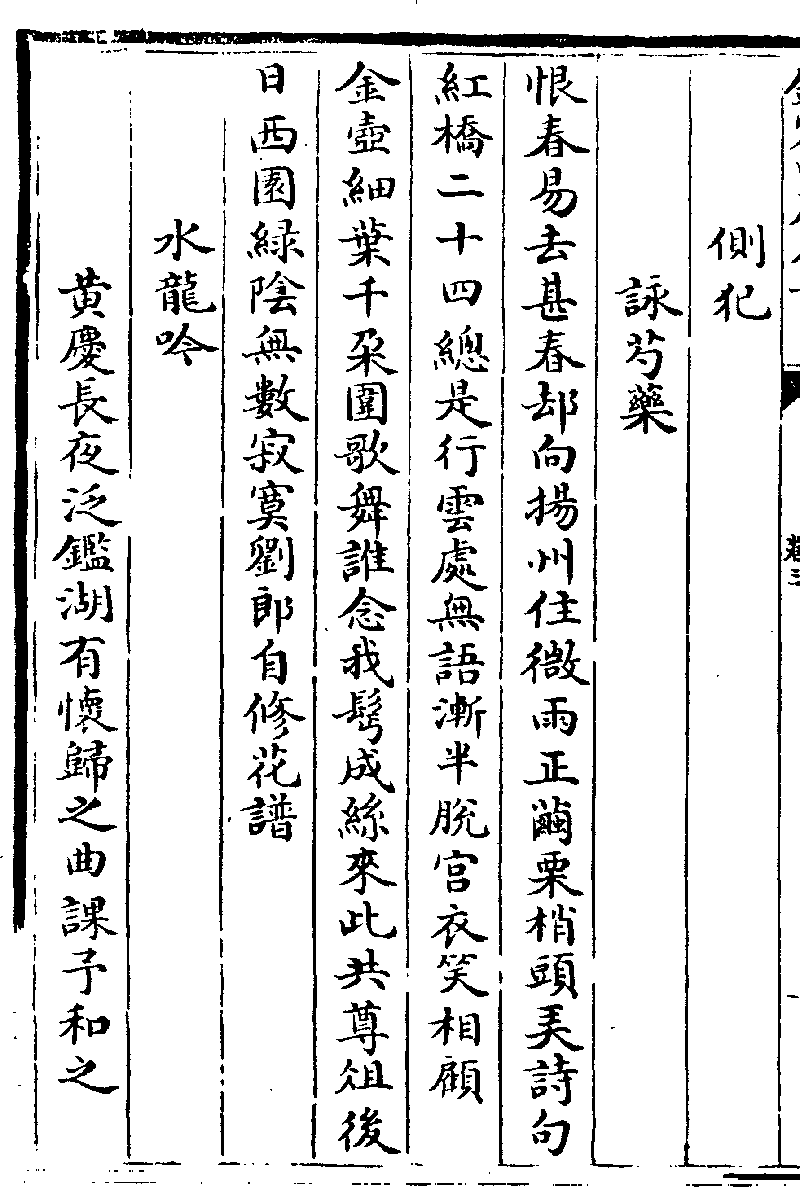 側犯
詠芍藥
恨春易去甚春却向揚州住微雨正繭栗梢頭美詩句
紅橋二十四總是行雲處無語漸半脫宮衣笑相顧
金壺細葉千朶圍歌舞誰念我鬂成絲來此共尊俎後
日西園緑陰無數寂寞劉郎自修花譜
水龍吟
黄慶長夜泛鑑湖有懷歸之曲課予和之
卷三